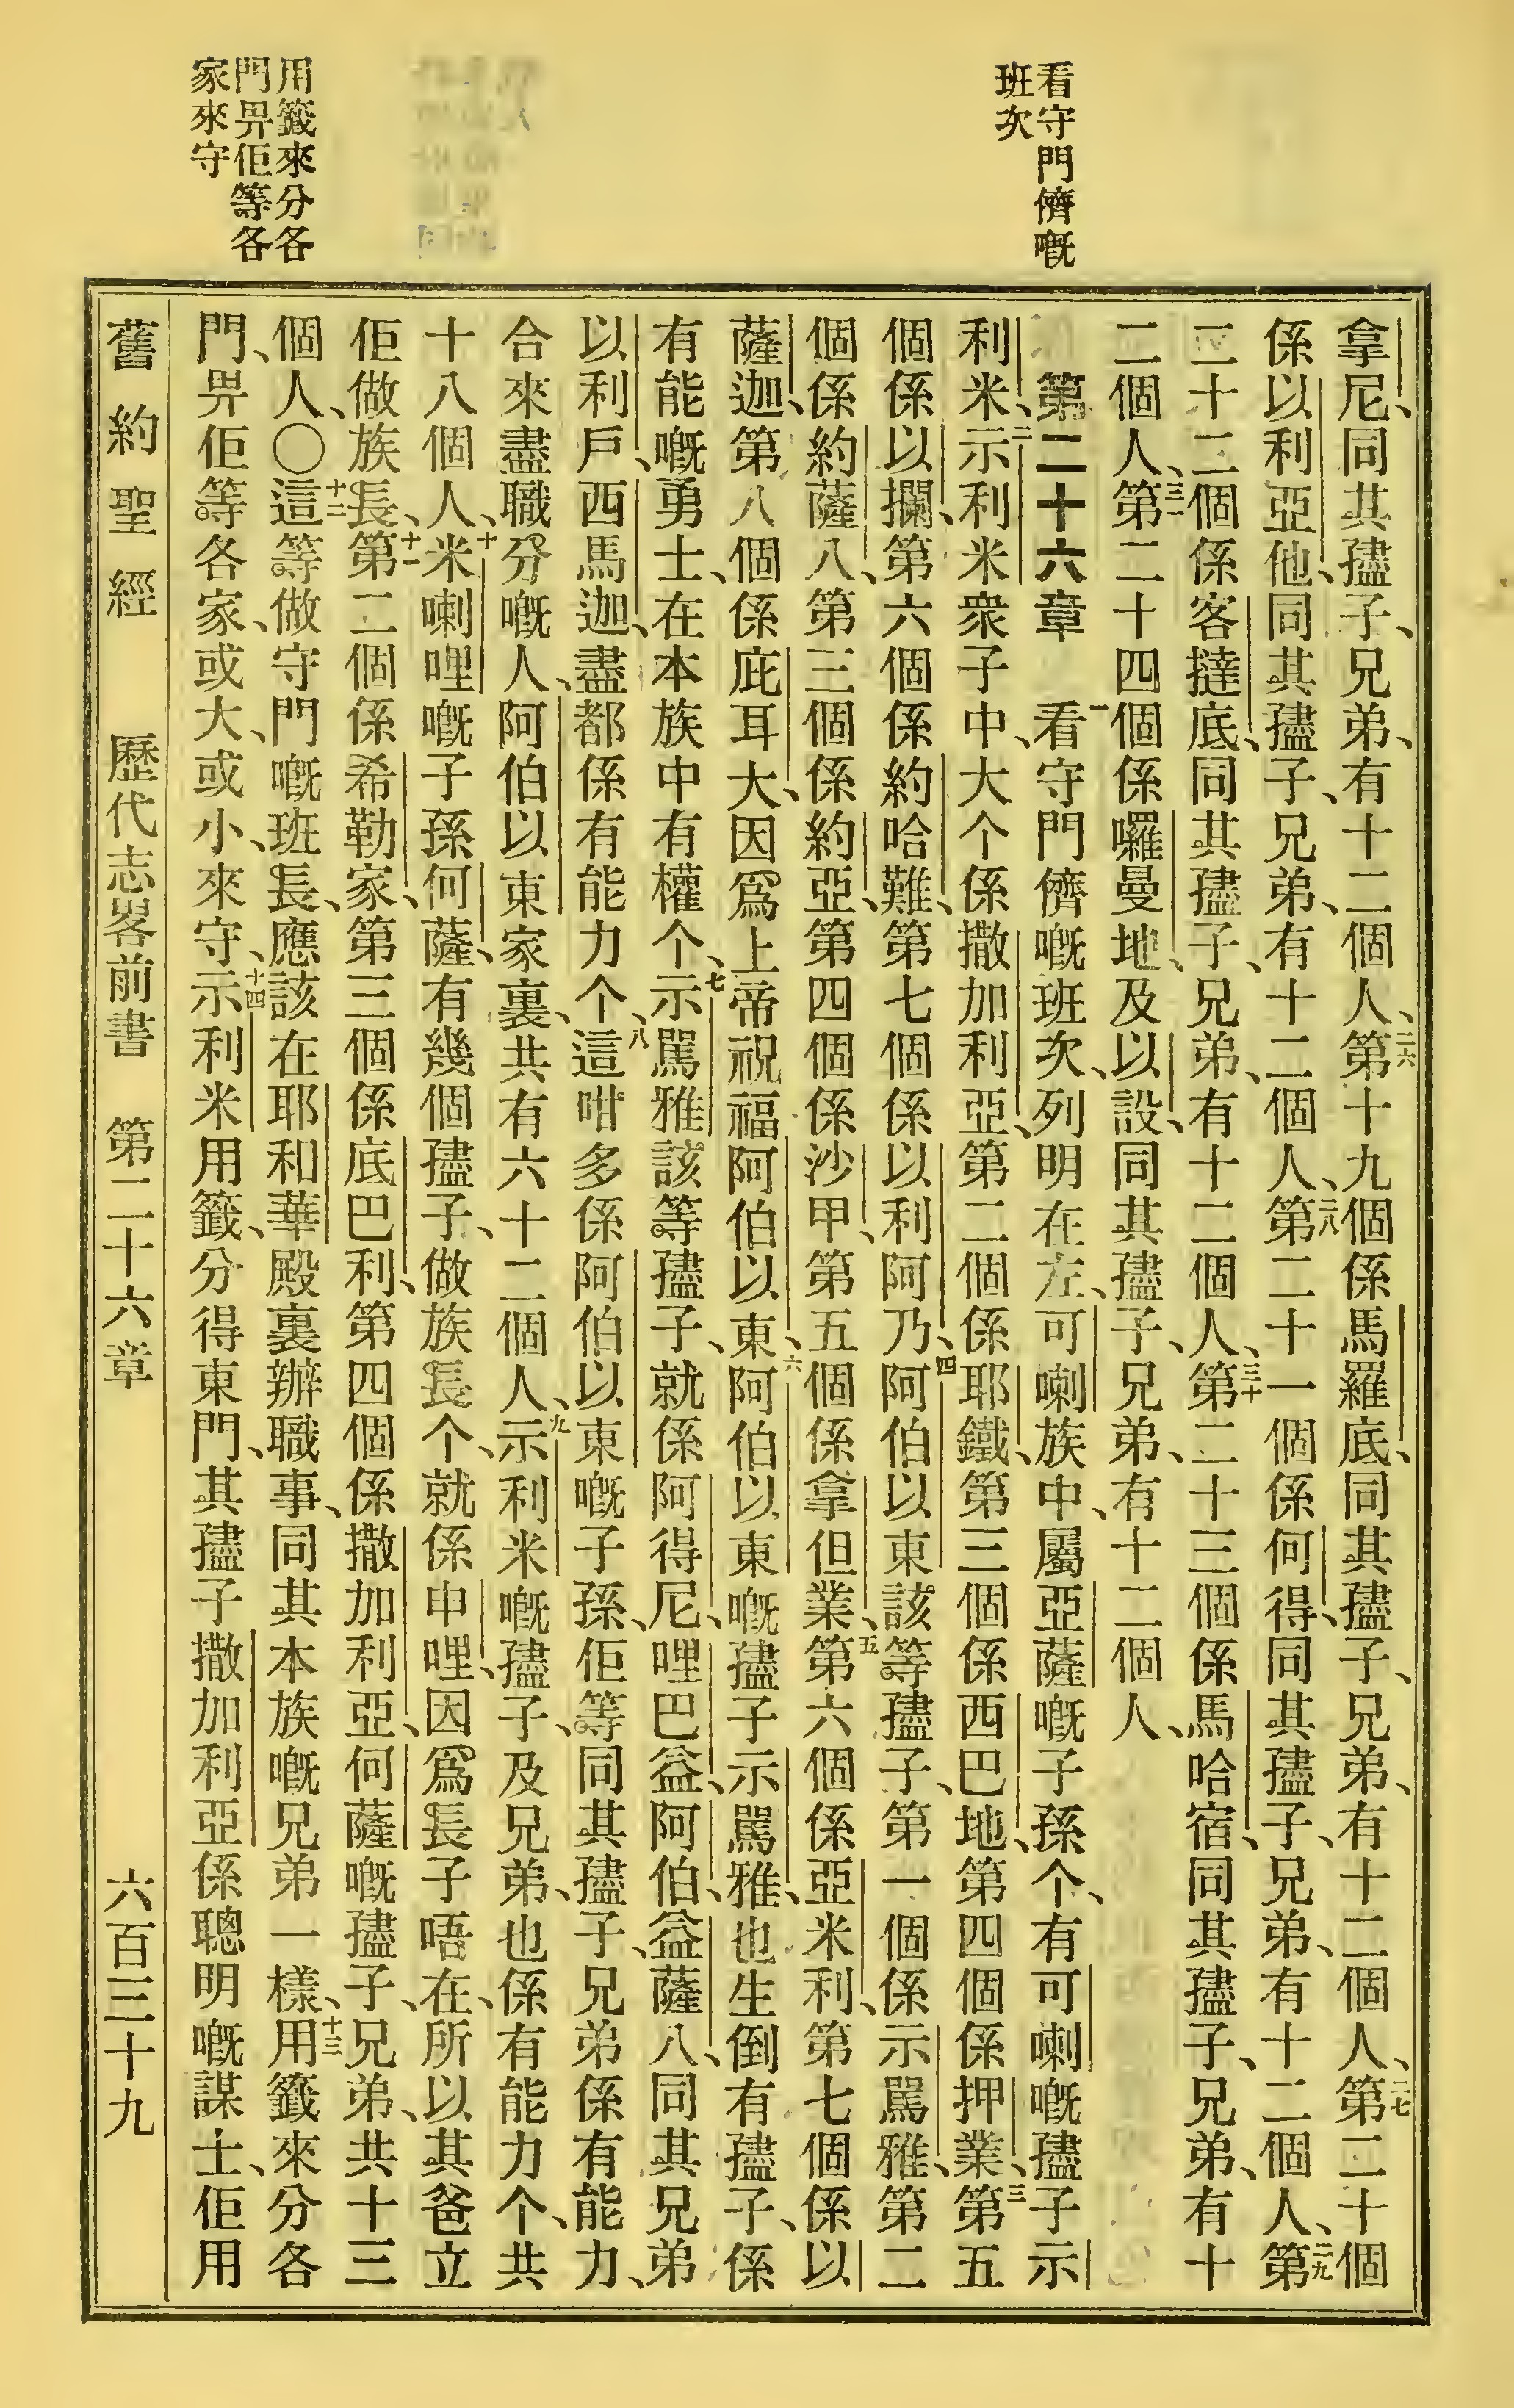 看守門儕嘅
班次
用籤來分各
門畀佢等各
家來守
拿尼、同其孻子、兄弟、有十二個人、二六第十九個係馬羅底、同其孻子、兄弟、有十二個人、二七第二十個
係以利亞他、同其孻子、兄弟、有十二個人、二八第二十一個係何得、同其孻子、兄弟、有十二個人、二九第
二十二個係客撻底、同其孻子、兄弟、有十二個人、三十第二十三個係馬哈宿、同其孻子、兄弟、有十
二個人、三一第二十四個係囉曼地、及以設、同其孻子、兄弟、有十二個人、
第二十六章 一看守門儕嘅班次、列明在左、可喇族中、屬亞薩嘅子孫个、有可喇嘅孻子示
利米、二示利米衆子中、大个係撒加利亞、第二個係耶鐵、第三個係西巴地、第四個係押業、三第五
個係以攔、第六個係約哈難、第七個係以利阿乃、四阿伯以東該等孻子、第一個係示罵雅、第二
個係約薩八、第三個係約亞、第四個係沙甲、第五個係拿但業、五第六個係亞米利、第七個係以
薩迦、第八個係庇耳大、因爲上帝祝福阿伯以東、六阿伯以東嘅孻子示罵雅、也生倒有孻子、係
有能嘅勇士、在本族中有權个、七示罵雅該等孻子、就係阿得尼、哩巴益、阿伯、益薩八、同其兄弟
以利戶、西馬迦、盡都係有能力个、八這咁多係阿伯以東嘅子孫、佢等同其孻子、兄弟係有能力、
合來盡職分嘅人、阿伯以東家裏、共有六十二個人、九示利米嘅孻子、及兄弟、也係有能力个、共
十八個人、十米喇哩嘅子孫何薩、有幾個孻子、做族長个、就係申哩、因爲長子唔在、所以其爸立
佢做族長、十一第二個係希勒家、第三個係底巴利、第四個係撒加利亞、何薩嘅孻子、兄弟、共十三
個人、〇十二這等做守門嘅班長、應該在耶和華殿裏辦職事、同其本族嘅兄弟一樣、十三用籤來分各
門、畀佢等各家、或大、或小、來守、十四示利米用籤、分得東門、其孻子撒加利亞係聰明嘅謀士、佢用
舊約聖經 歷代志畧前書 第二十六章 六百三十九